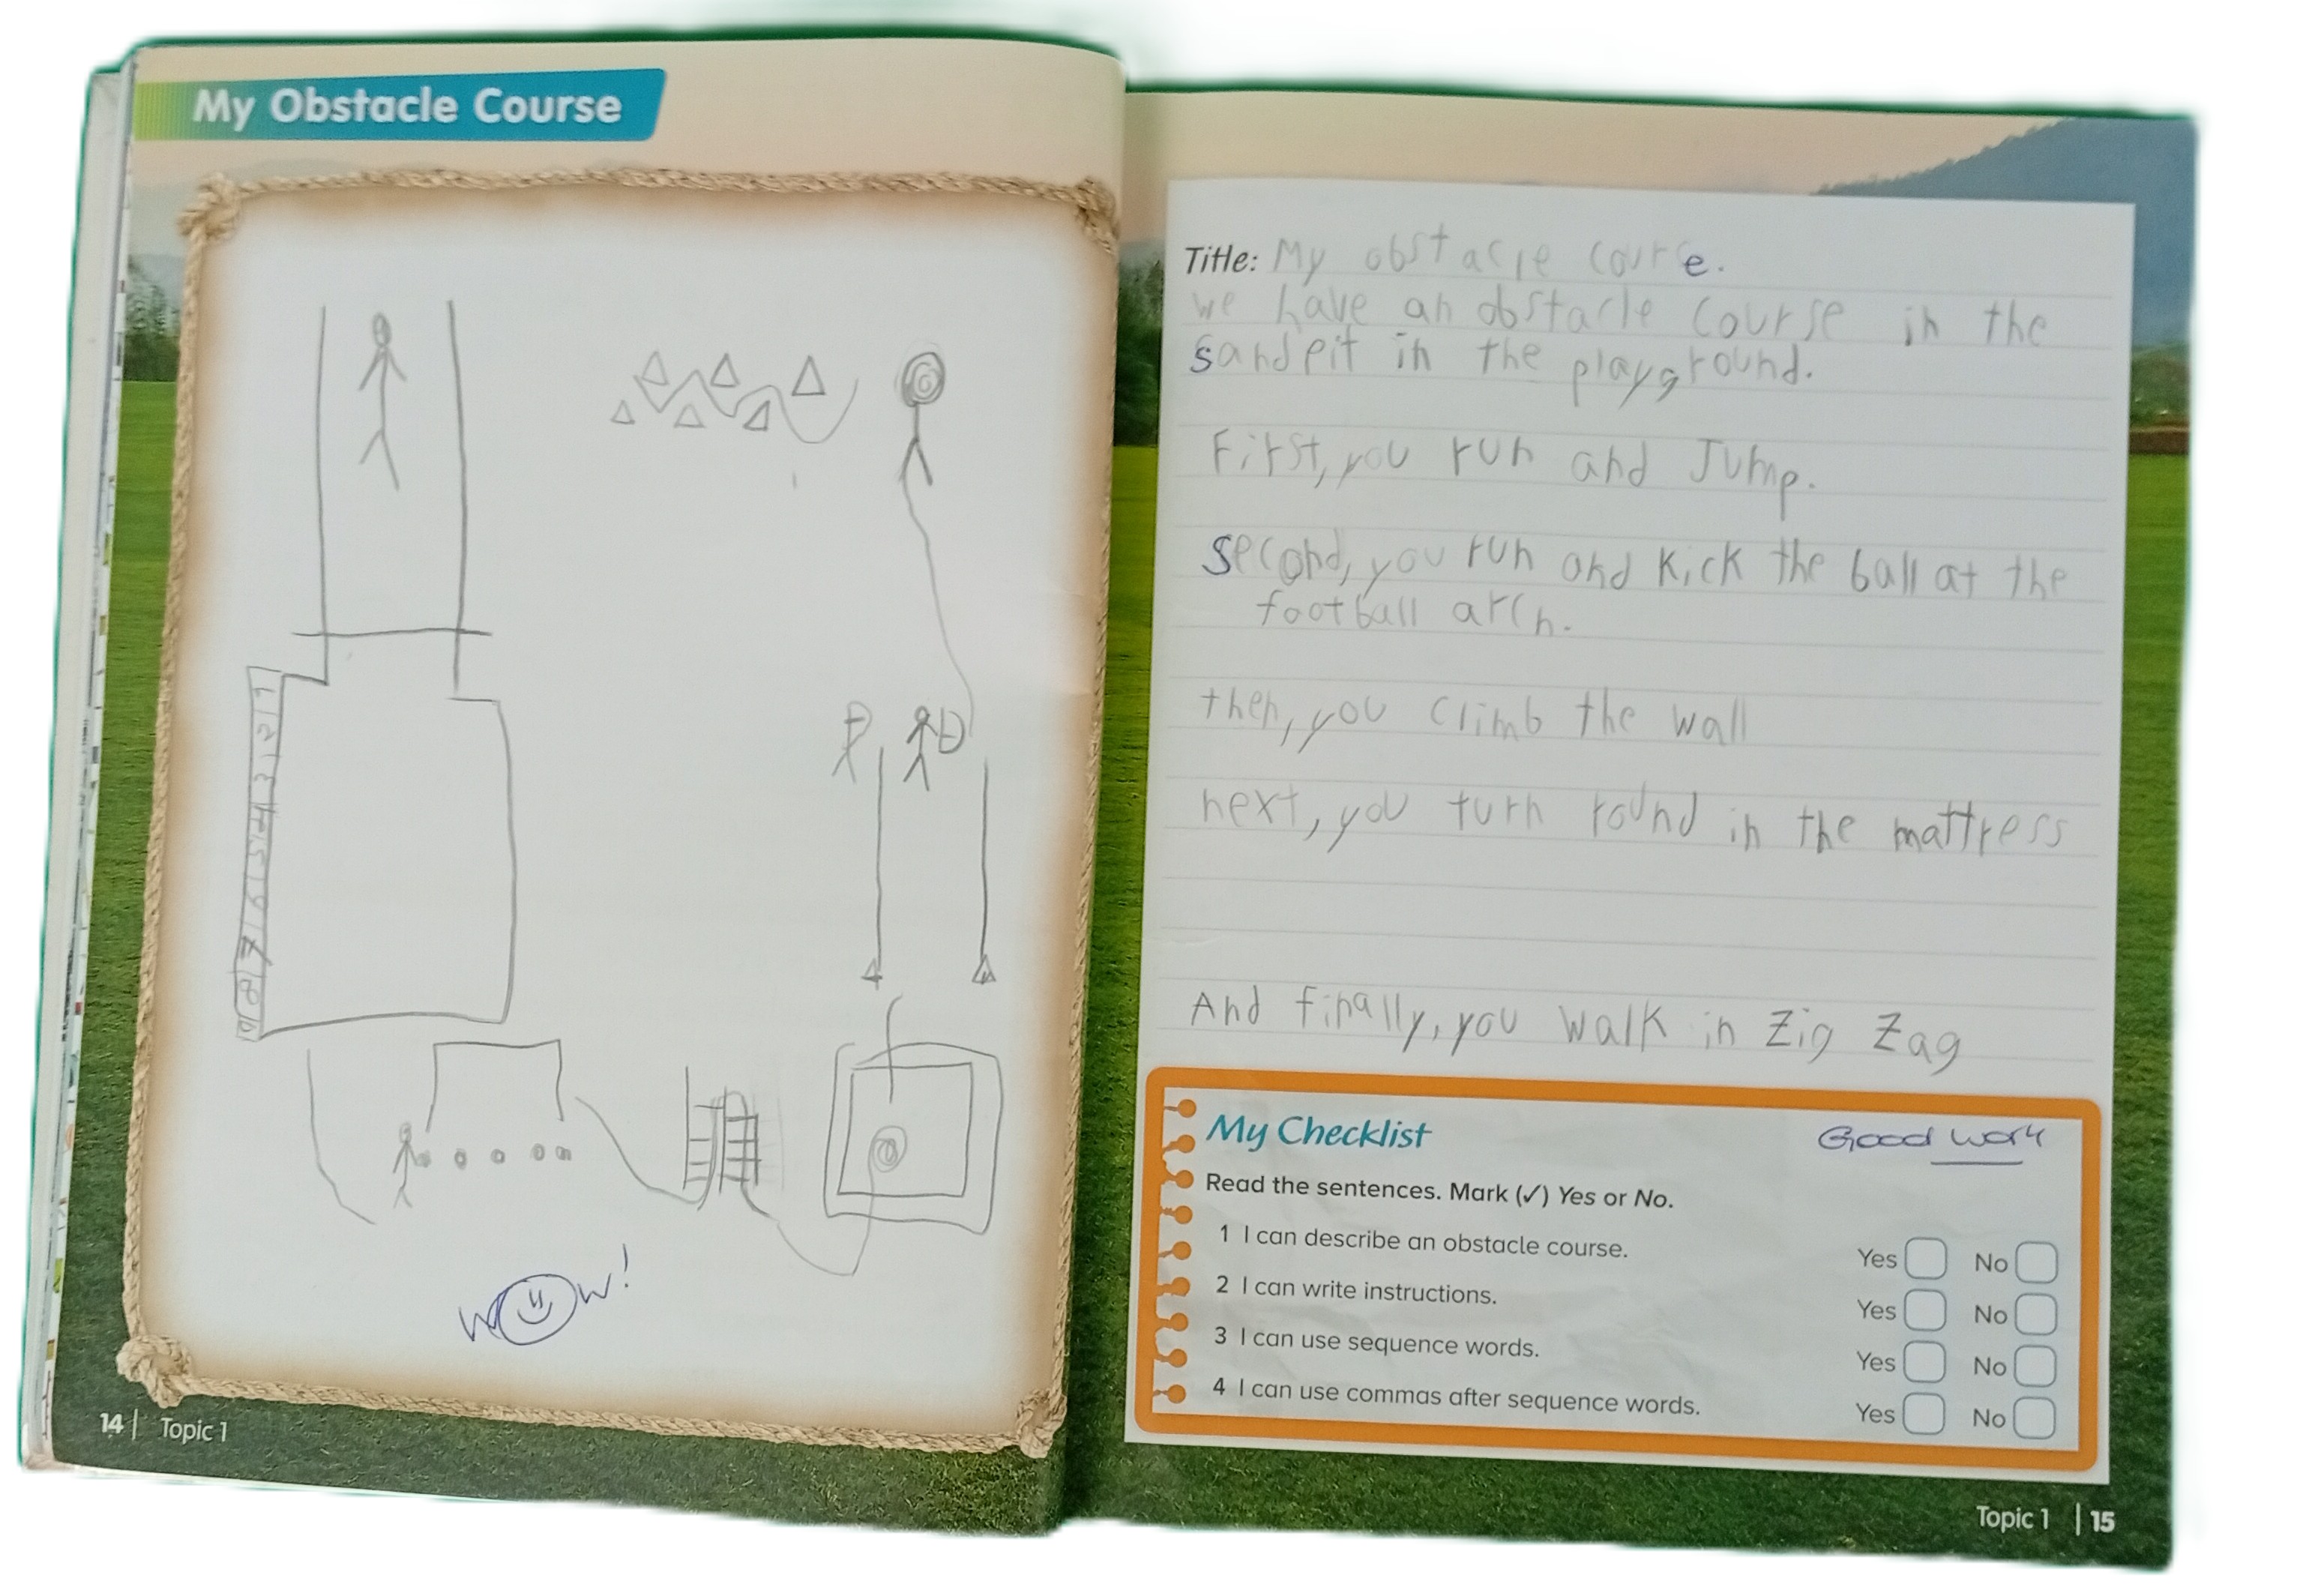 My Obstacle Course
1
2
3
4
5
6
7
8
WOW!
14 | Topic 1
Title: My obstacle cource.
we have an obstacle course in the
sandpit in the playground.
First, you run and Jump.
second, you run and kick the ball at the
football arch.
then, you climb the wall
next, you turn round in the mattress
And finally, you walk in Zig Zag
My Checklist
Good work
Read the sentences. Mark (✓) Yes or No.
1 I can describe an obstacle course. Yes No
2 I can write instructions. Yes No
3 I can use sequence words. Yes No
4 I can use commas after sequence words. Yes No
Topic 1 | 15